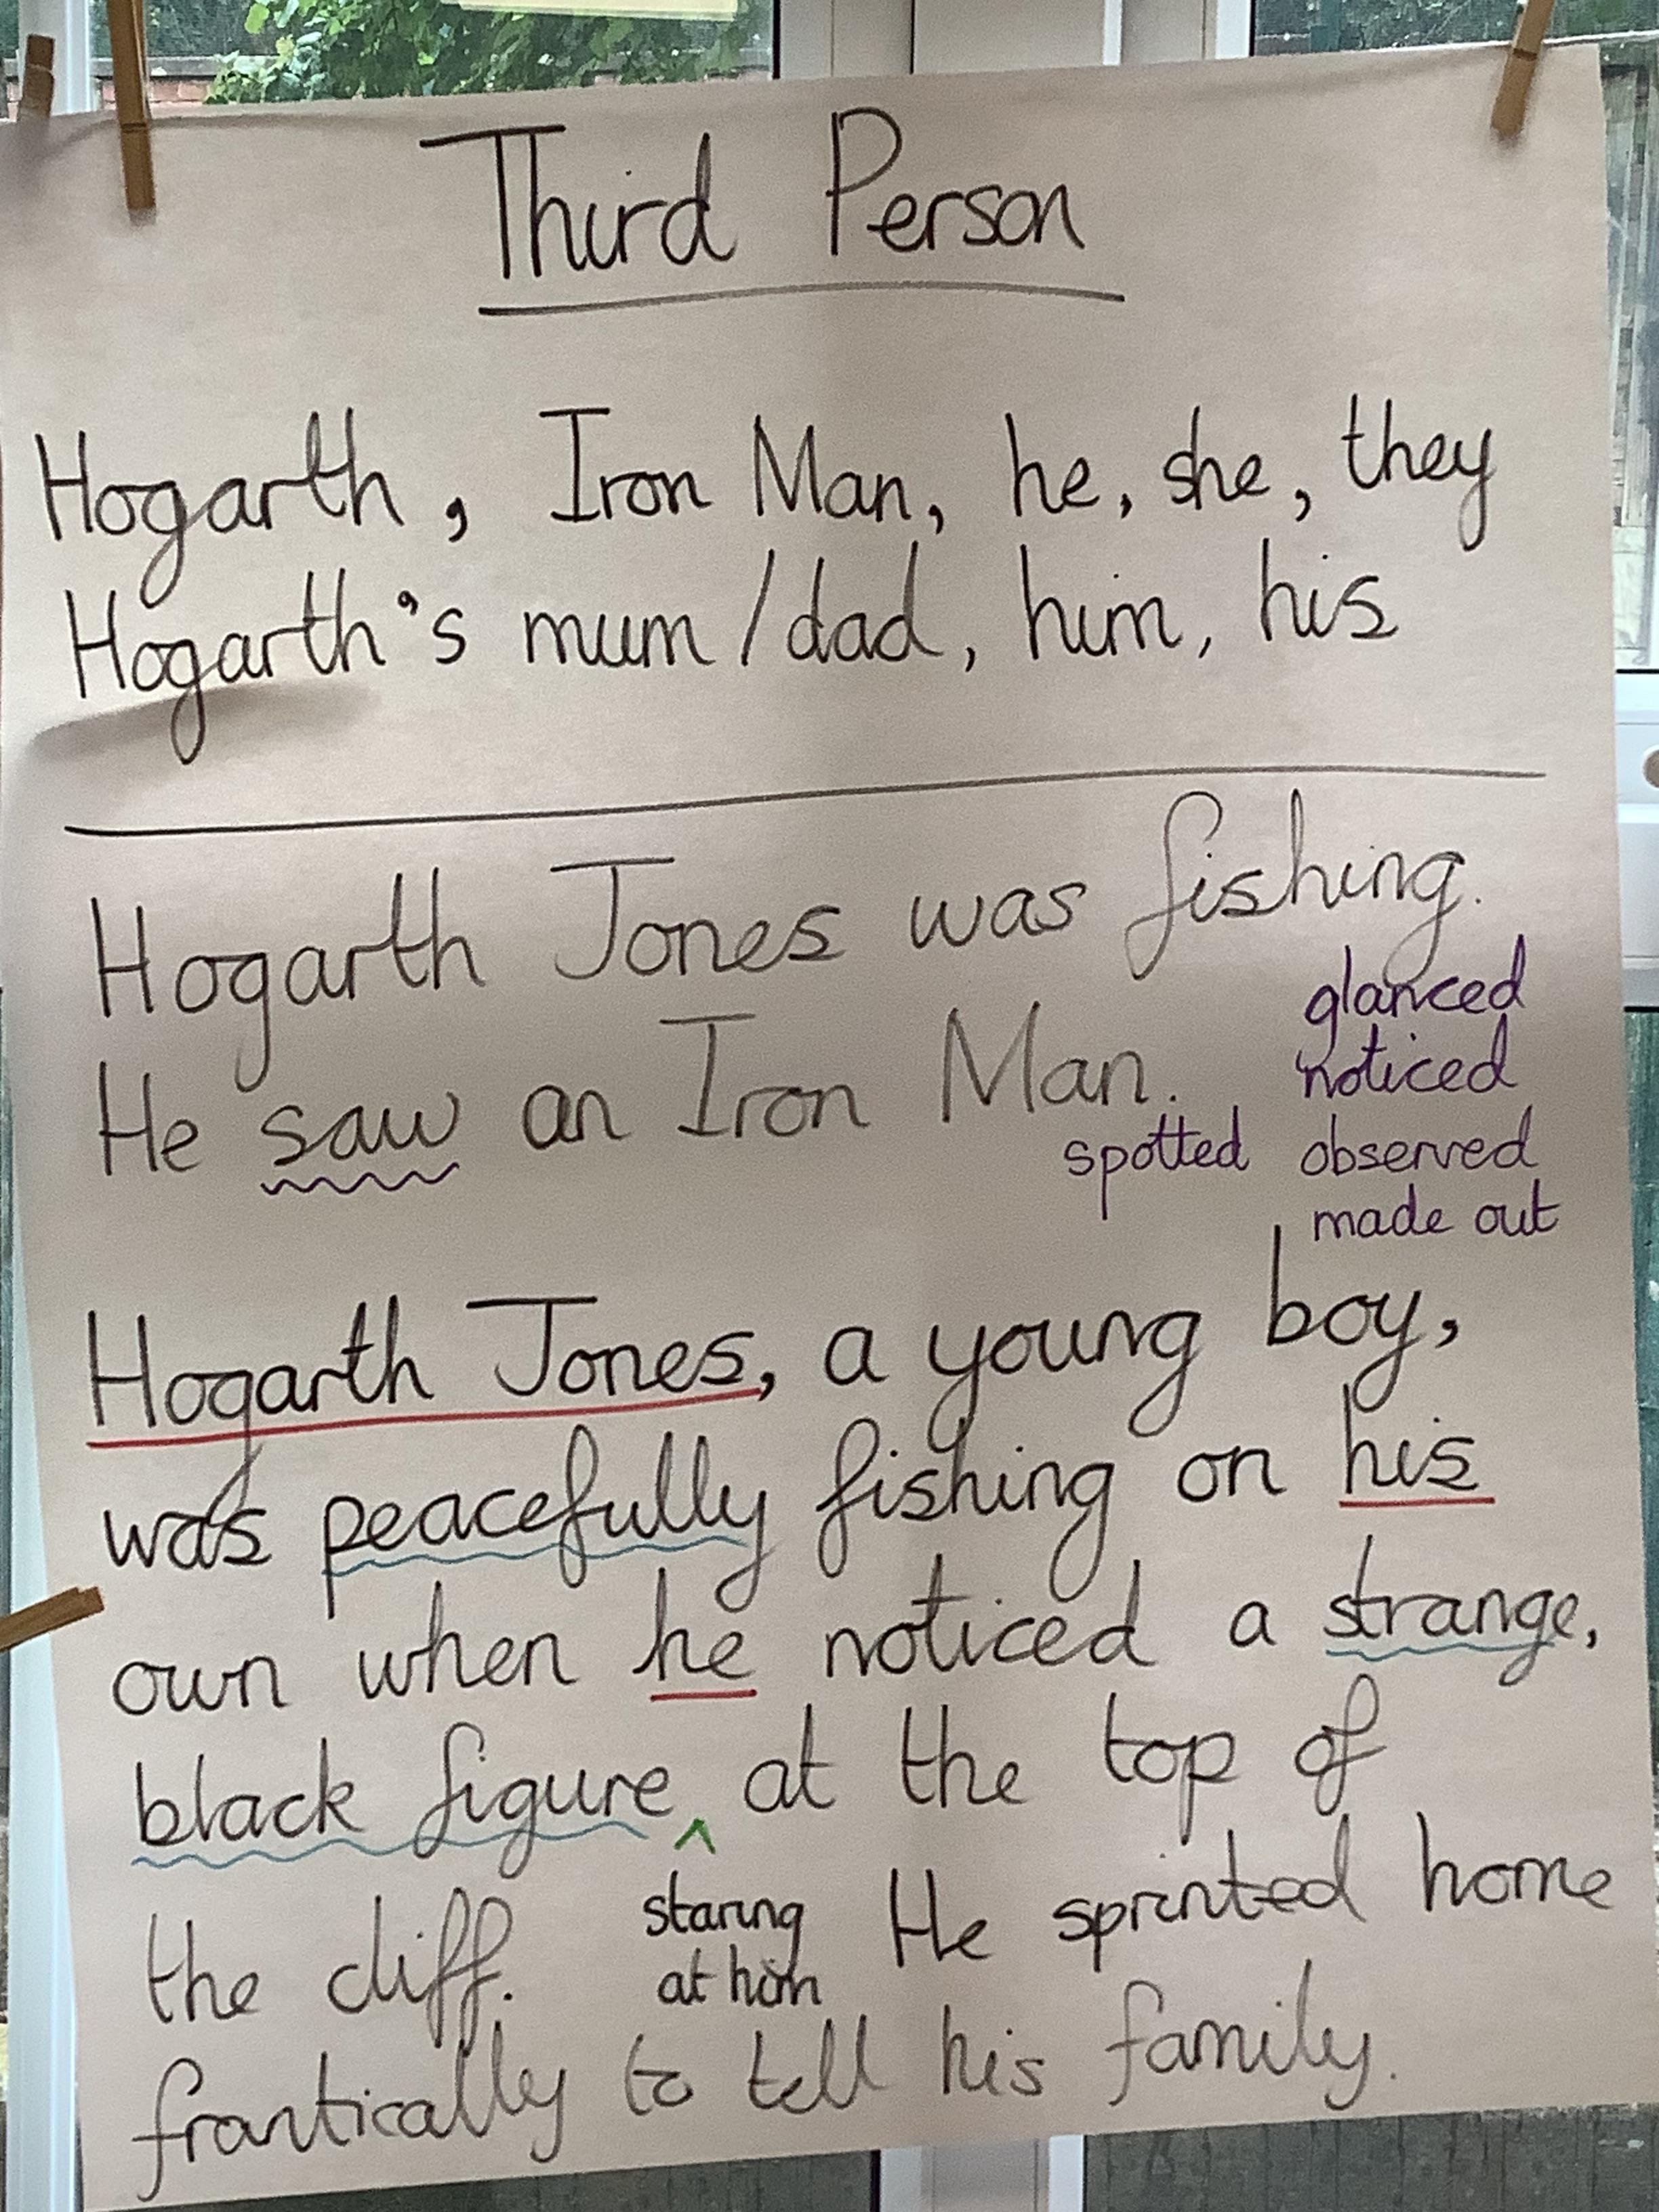 Third Person
Hogarth, Iron Man, he, she, they
Hogarth's mum/dad, him, his
Hogarth Jones was fishing.
glanced
He saw an Iron Man. noticed
spotted observed
made out
Hogarth Jones, a young boy,
was peacefully fishing on his
own when he noticed a strange,
black figure ^ at the top of
the cliff. staring at him He sprinted home
frantically to tell his family.